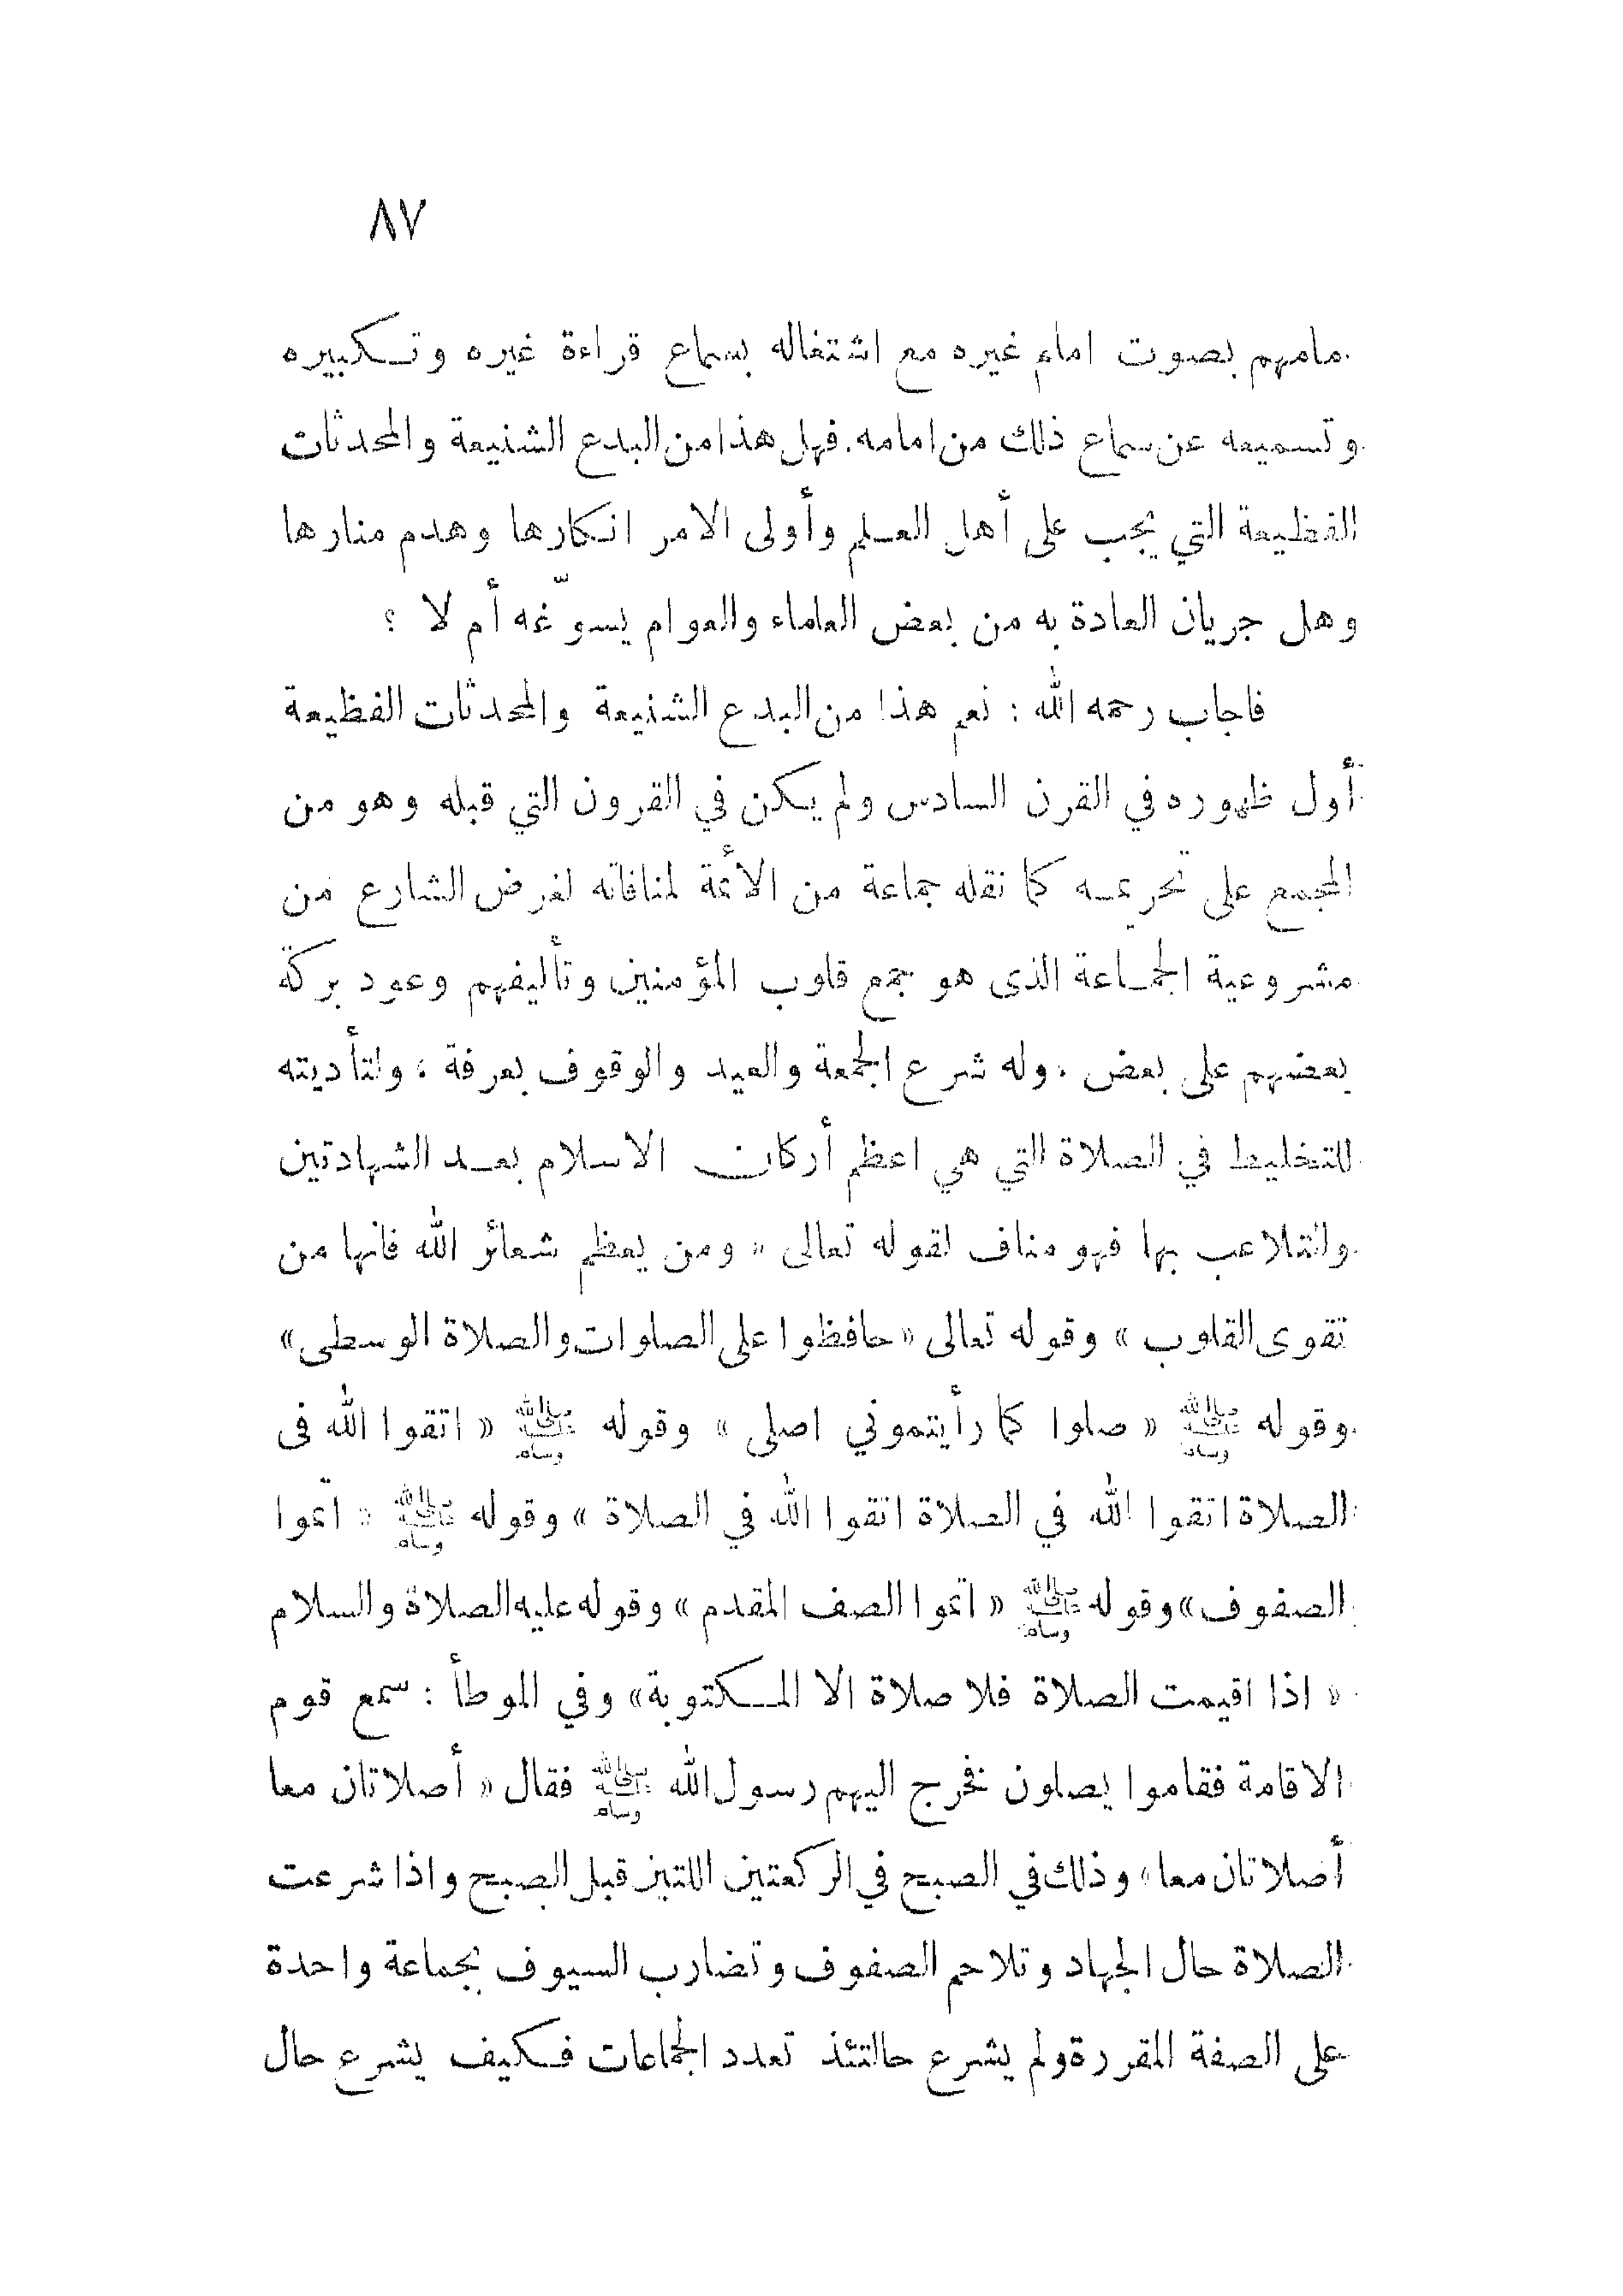 ٨٧
مامهم بصوت امام غيره مع اشتغاله بسماع قراءة غيره وتكبيره
وتسميعه عن سماع ذلك من امامه. فهل هذا من البدع الشنيعة والمحدثات
الفظيعة التي يجب على أهل العلم وأولى الامر انكارها وهدم منارها
وهل جريان العادة به من بعض العلماء والعوام يسوّغه أم لا ؟
فاجاب رحمه الله : نعم هذا من البدع الشنيعة والمحدثات الفظيعة
أول ظهوره في القرن السادس ولم يكن في القرون التي قبله وهو من
المجمع على تحريمه كما نقله جماعة من الأئمة لمنافاته لغرض الشارع من
مشروعية الجماعة الذى هو جمع قلوب المؤمنين وتأليفهم وعود بركة
بعضهم على بعض . وله شرع الجمعة والعيد والوقوف بعرفة ؛ ولتأديته
للتخليط في الصلاة التي هي اعظم أركان الاسلام بعد الشهادتين
ولتلاعب بها فهو مناف لقوله تعالى « ومن يعظم شعائر الله فانها من
تقوى القلوب » وقوله تعالى « حافظوا على الصلوات والصلاة الوسطى »
وقوله ﷺ « صلوا كما رأيتموني اصلى » وقوله ﷺ « اتقوا الله فى
الصلاة اتقوا الله في الصلاة اتقوا الله في الصلاة » وقوله ﷺ « اتموا
الصفوف » وقوله ﷺ « اتموا الصف المقدم » وقوله عليه الصلاة والسلام
« اذا اقيمت الصلاة فلا صلاة الا المكتوبة » وفي الموطأ : سمع قوم
الاقامة فقاموا يصلون فخرج اليهم رسول الله ﷺ فقال « أصلاتان معا
أصلاتان معا » وذلك في الصبح في الركعتين اللتين قبل الصبح واذا شرعت
الصلاة حال الجهاد وتلاحم الصفوف وتضارب السيوف بجماعة واحدة
على الصفة المقررة ولم يشرع حالتئذ تعدد الجماعات فكيف يشرع حال